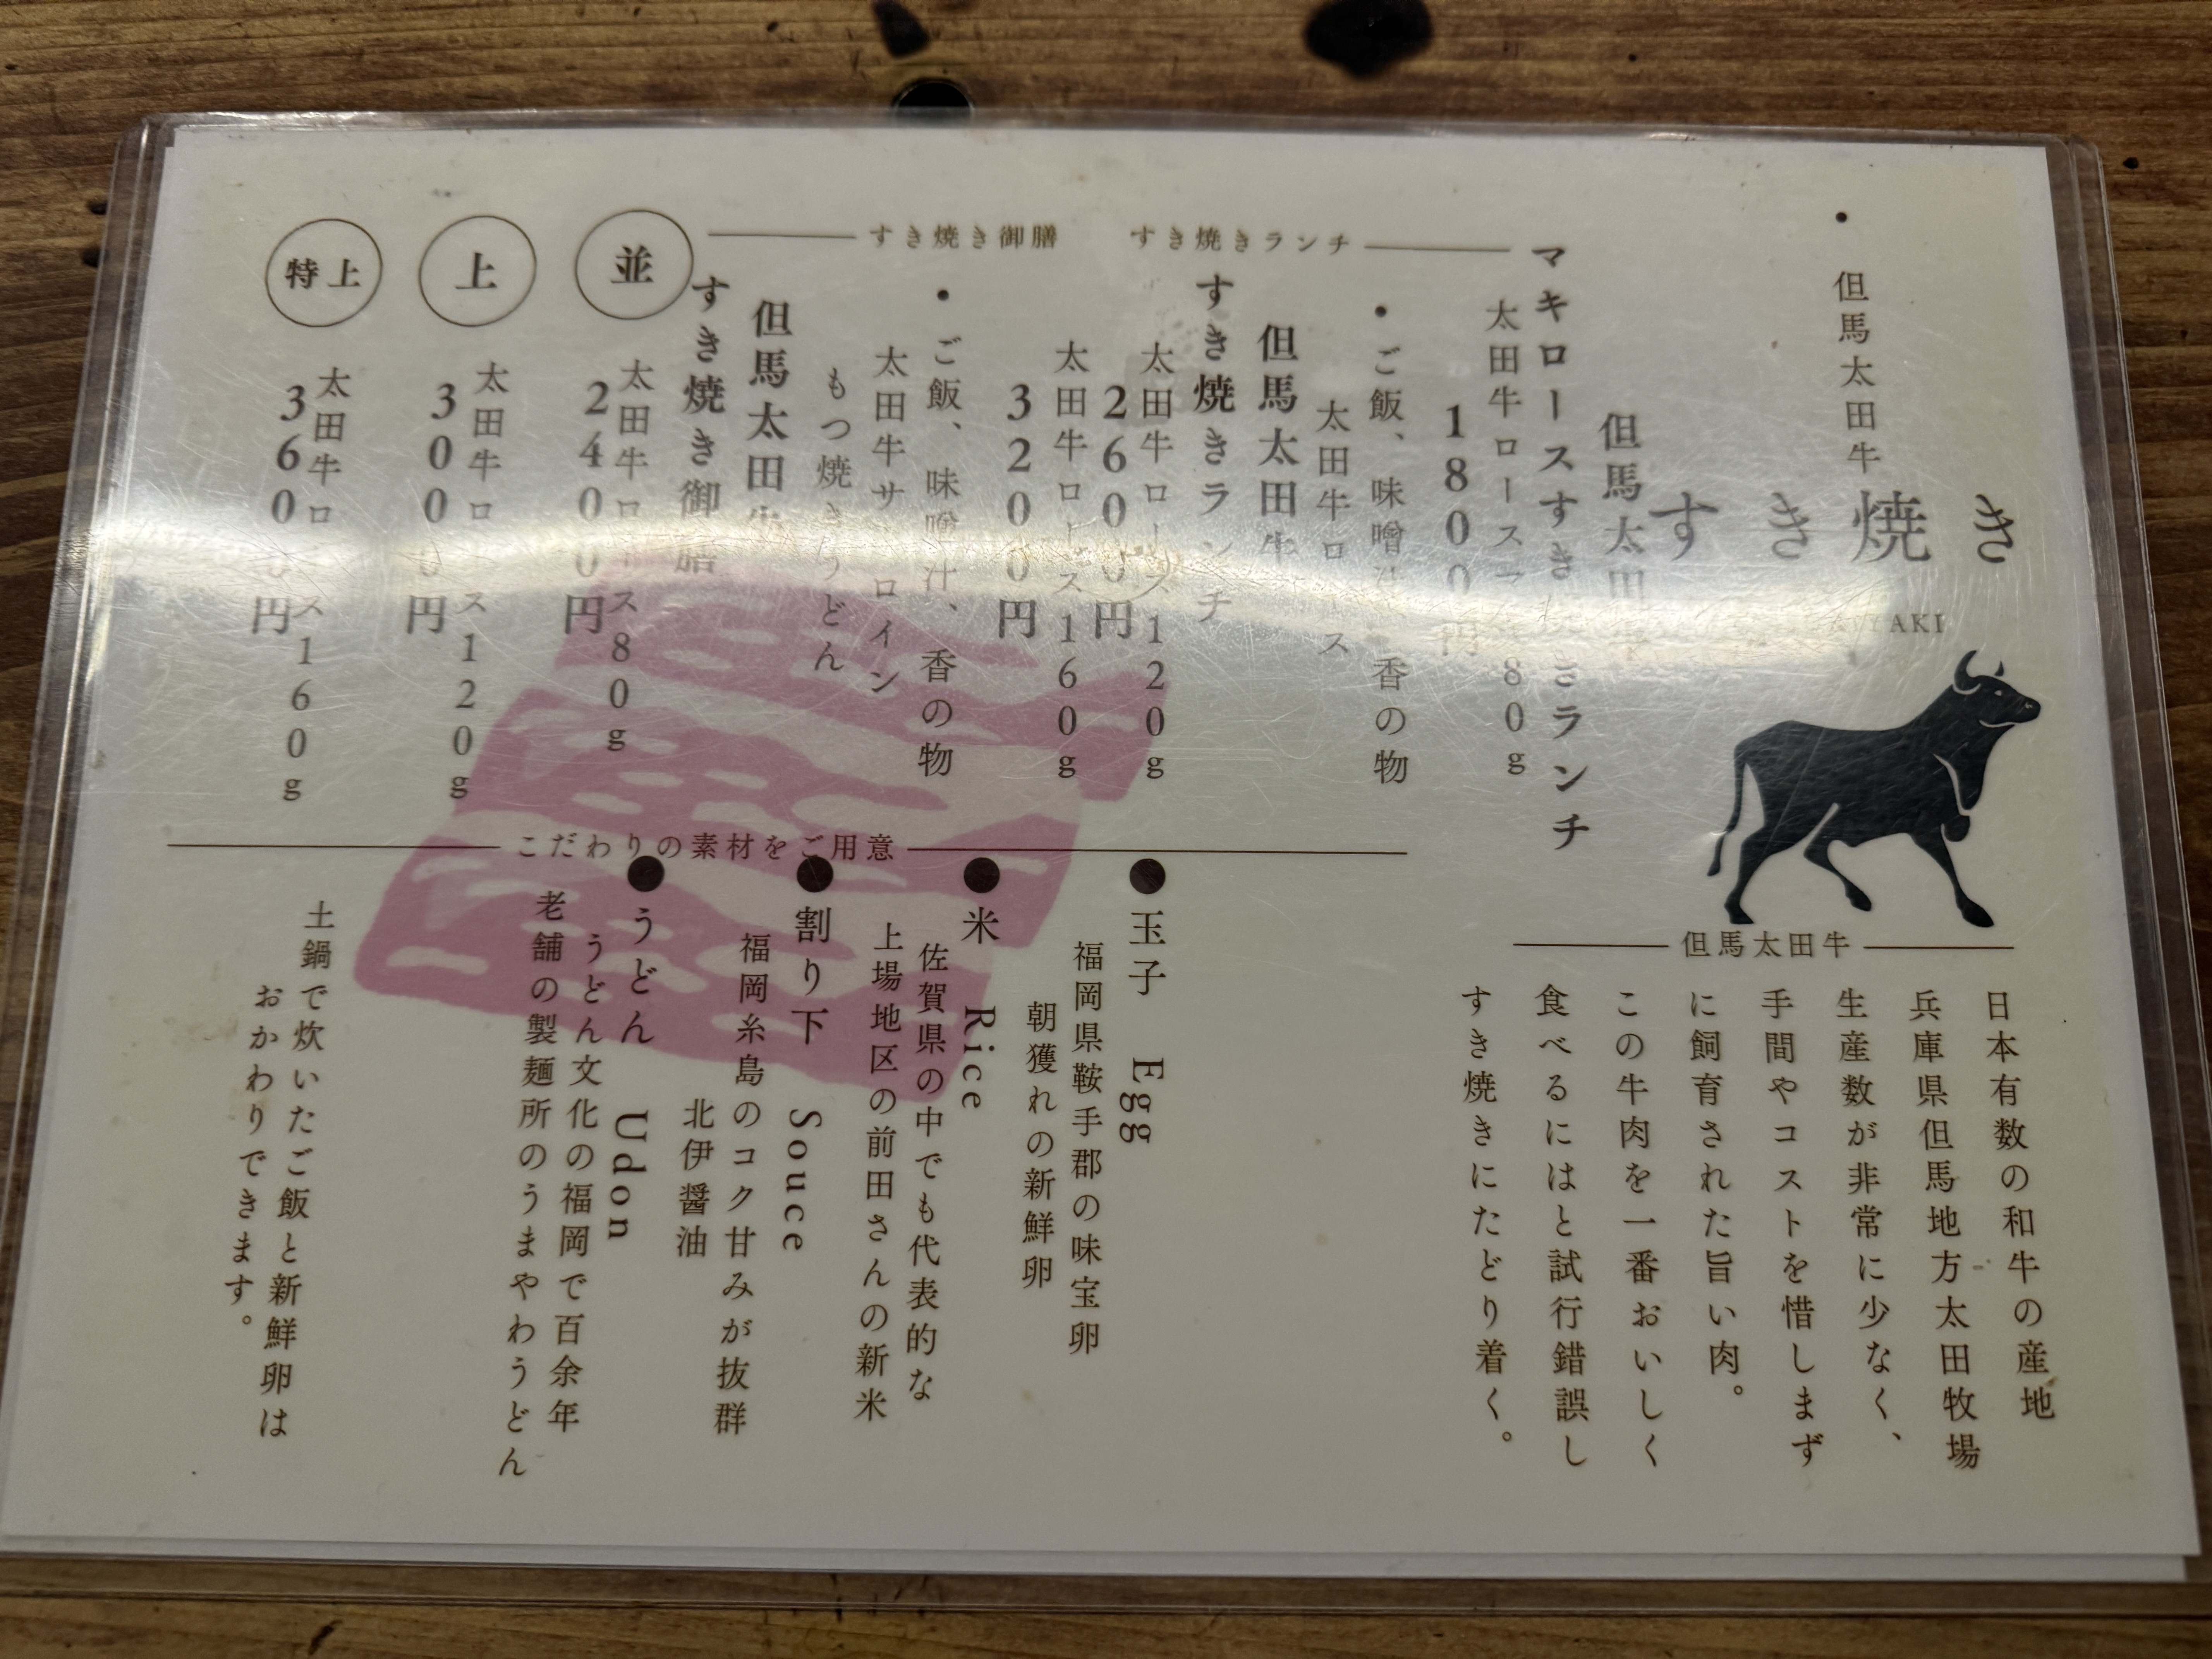 ・但馬太田牛
すき焼き
YAKI
但馬太田牛
日本有数の和牛の産地
兵庫県但馬地方太田牧場
生産数が非常に少なく、
手間やコストを惜しまず
に飼育された旨い肉。
この牛肉を一番おいしく
食べるにはと試行錯誤し
すき焼きにたどり着く。
但馬太田
マキロースすき ランチ
太田牛ロース 80g
1800円
すき焼きランチ
・ご飯、味噌汁 香の物
太田牛ロース
但馬太田牛
すき焼きランチ
太田牛ロース120g
2600円
太田牛ロース160g
3200円
すき焼き御膳
・ご飯、味噌汁、香の物
太田牛サーロイン
もつ焼きうどん
但馬太田牛
すき焼き御膳
並
太田牛ロース80g
2400円
上
太田牛ロース120g
3000円
特上
太田牛ロース160g
3600円
こだわりの素材をご用意
●玉子 Egg
福岡県鞍手郡の味宝卵
朝獲れの新鮮卵
●米 Rice
佐賀県の中でも代表的な
上場地区の前田さんの新米
●割り下 Souce
福岡糸島のコク甘みが抜群
北伊醤油
●うどん Udon
うどん文化の福岡で百余年
老舗の製麺所のうまやわうどん
土鍋で炊いたご飯と新鮮卵は
おかわりできます。